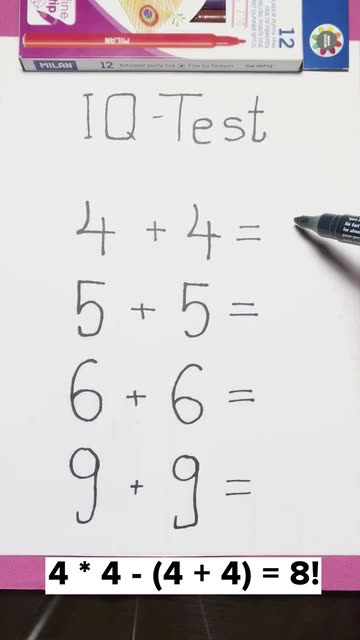 12
MILAN
12
IQ-Test
4 + 4 =
5 + 5 =
6 + 6 =
9 + 9 =
4 * 4 - (4 + 4) = 8!